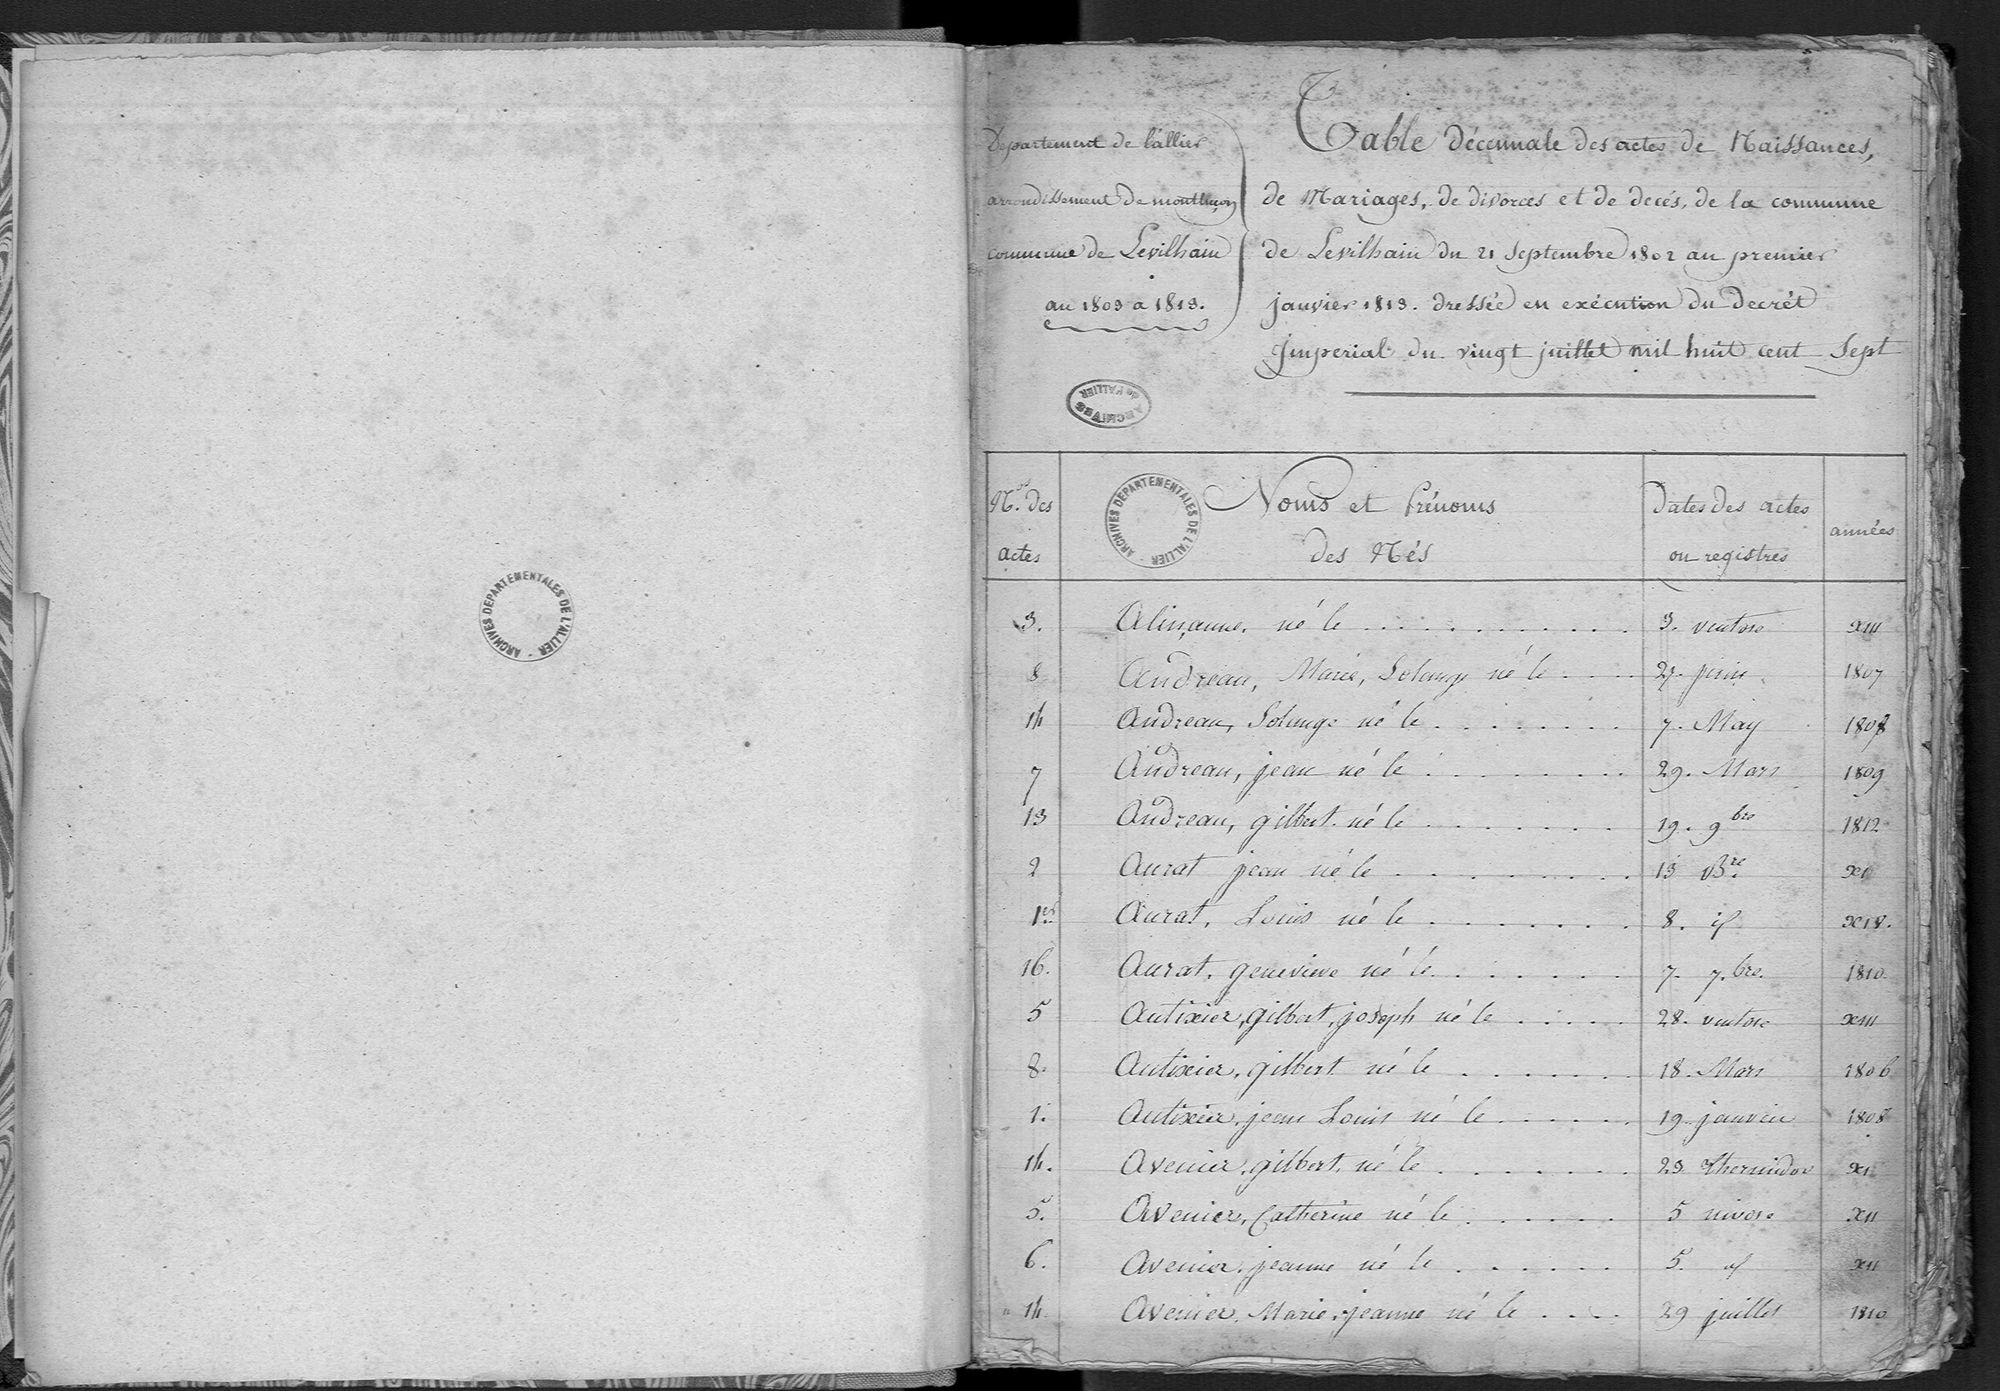 ARCHIVES DEPARTEMENTALES DE L'ALLIER
Departement de l'allier
arrondissement de montluçon
commune de Levilhain
an 1803 a 1813.
Table décennale des actes de Naissances,
de Mariages, de divorces et de decés, de la commune
de Levilhain du 21 Septembre 1802 au premier
janvier 1813. dressée en exécution du Decrêt
Imperial du vingt juillet mil huit cent Sept
ARCHIVES de L'ALLIER
ARCHIVES DEPARTEMENTALES DE L'ALLIER
Nos des actes Noms et Prénoms des Nés Dates des actes ou registres années
3. né le 3. ventose XIII
8 Andreau, Marie, Solange né le 27. juin 1807
14 Andreau, Solange né le 7. May 1808
7 Andreau, jean né le 29. Mars 1809
13 Andreau, gilbert né le 19. 9bre 1812
2 Aurat jean né le 13 Bre
1er Aurat, Louis né le 8. if
16. Aurat, genevieve né le 7. 7bre. 1810
5 Autixier, gilbert, joseph né le 28. ventose XIII
8. Autixier, gilbert né le 18. Mars 1806
1. Autixier, jean Louis né le 19. janvier 1808
14. Avenier, gilbert, né le 23 thermidor
5. Avenier, Catherine né le 5 nivose XII
6. Avenier, jeanne né le 5. if XII
14 Avenier, Marie, jeanne né le 29 juillet 1810